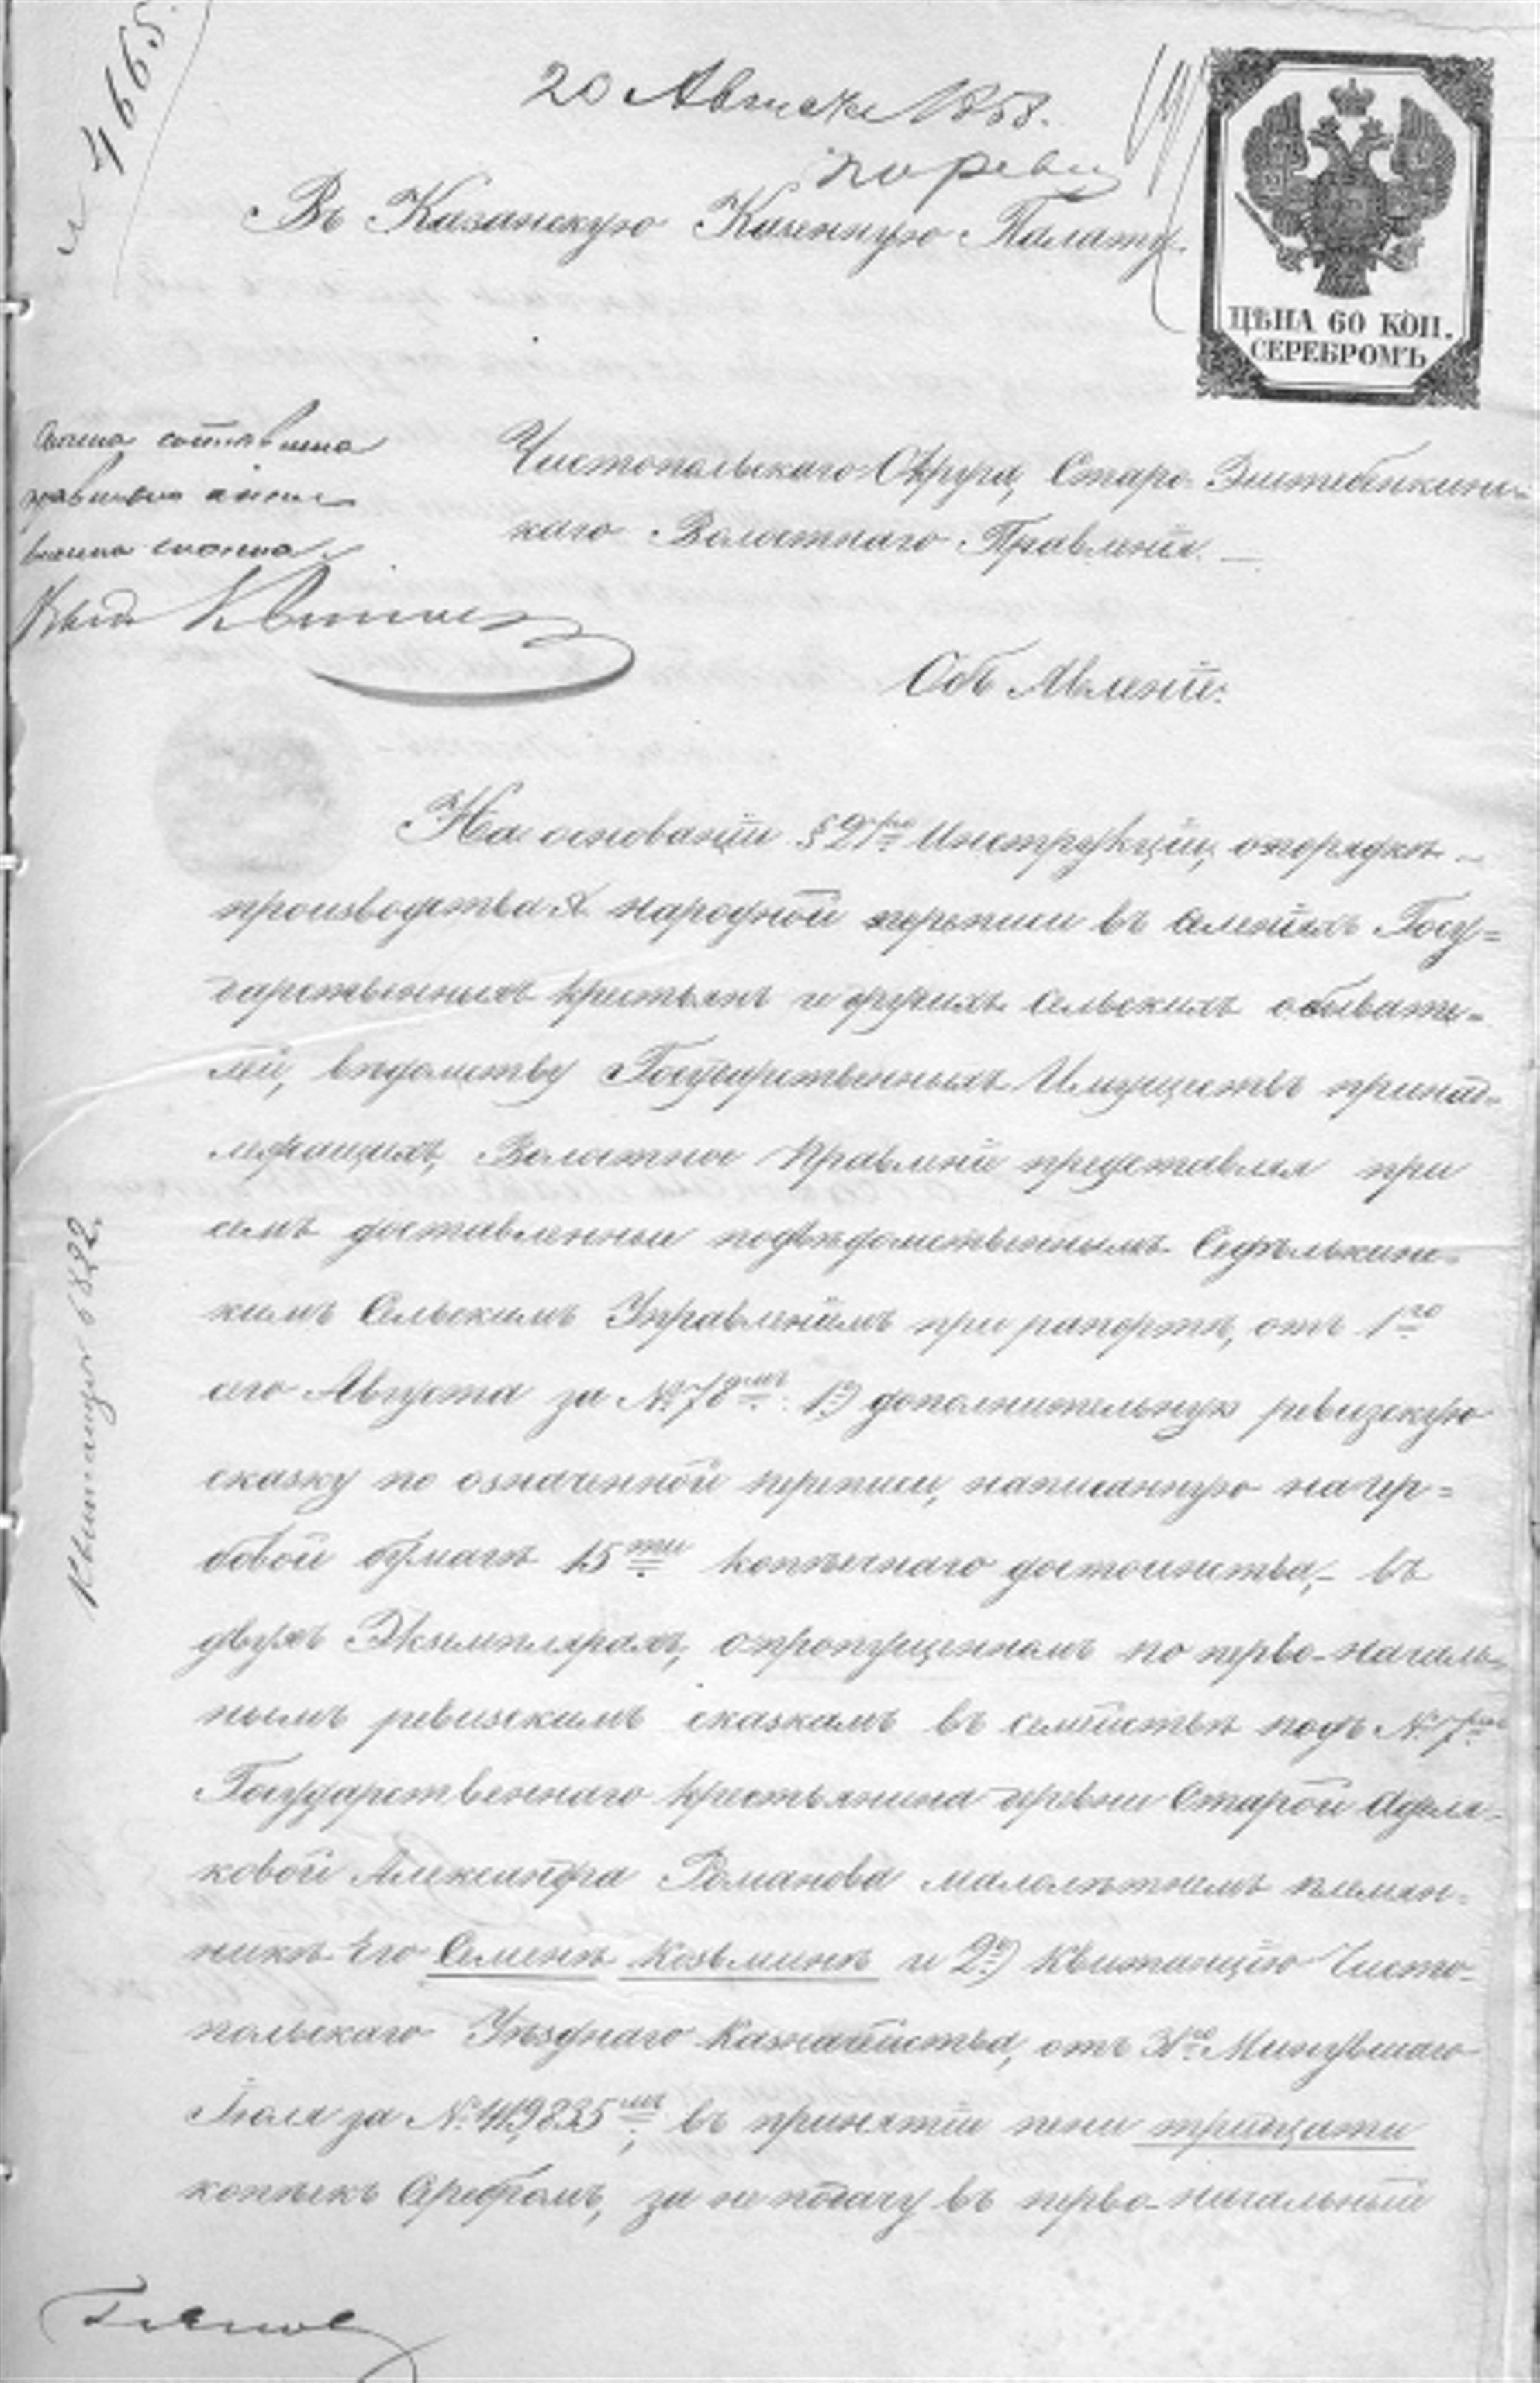 4665.
20 Августа 1858.
по реви
Въ Казанскую Казенную Палату.
ЦѢНА 60 КОП.
СЕРЕБРОМЪ
Чистопольскаго Округа, Старо-
каго Волостнаго Правленія. —
Объ Явленіе:
На основаніи § Инструкціи, опорядкѣ
производства X народной переписи въ имѣніяхъ Госу=
дарственныхъ крестьянъ и другихъ сельскихъ обывате=
лей, вѣдомству Государственныхъ Имуществъ принад=
лежащихъ, Волостное Правленіе представляя при
семъ доставленныя подвѣдомственнымъ
кимъ Сельскимъ Управленіемъ при рапортѣ, отъ 1го
сего Августа за № 78мъ: 1е) дополнительную ревизскую
сказку по означенной переписи, написанную на гер=
бовой бумагѣ 15ти копѣечнаго достоинства, въ
двухъ Экземплярахъ, опропущенномъ по перво-началь=
нымъ ревизскимъ сказкамъ въ семействѣ подъ № 7мъ
Государственнаго крестьянина деревни Старой Адамъ-
ковой Александра Романова малолѣтнемъ племян=
никѣ Его Семенѣ Козьминѣ и 2е) Квитанцію Чисто-
польскаго Уѣзднаго Казначейства, отъ Минувшаго
Іюля за № въ принятіи пени тридцати
копѣекъ Серебромъ, за не подачу въ перво-начальный
Квитанція 6822.